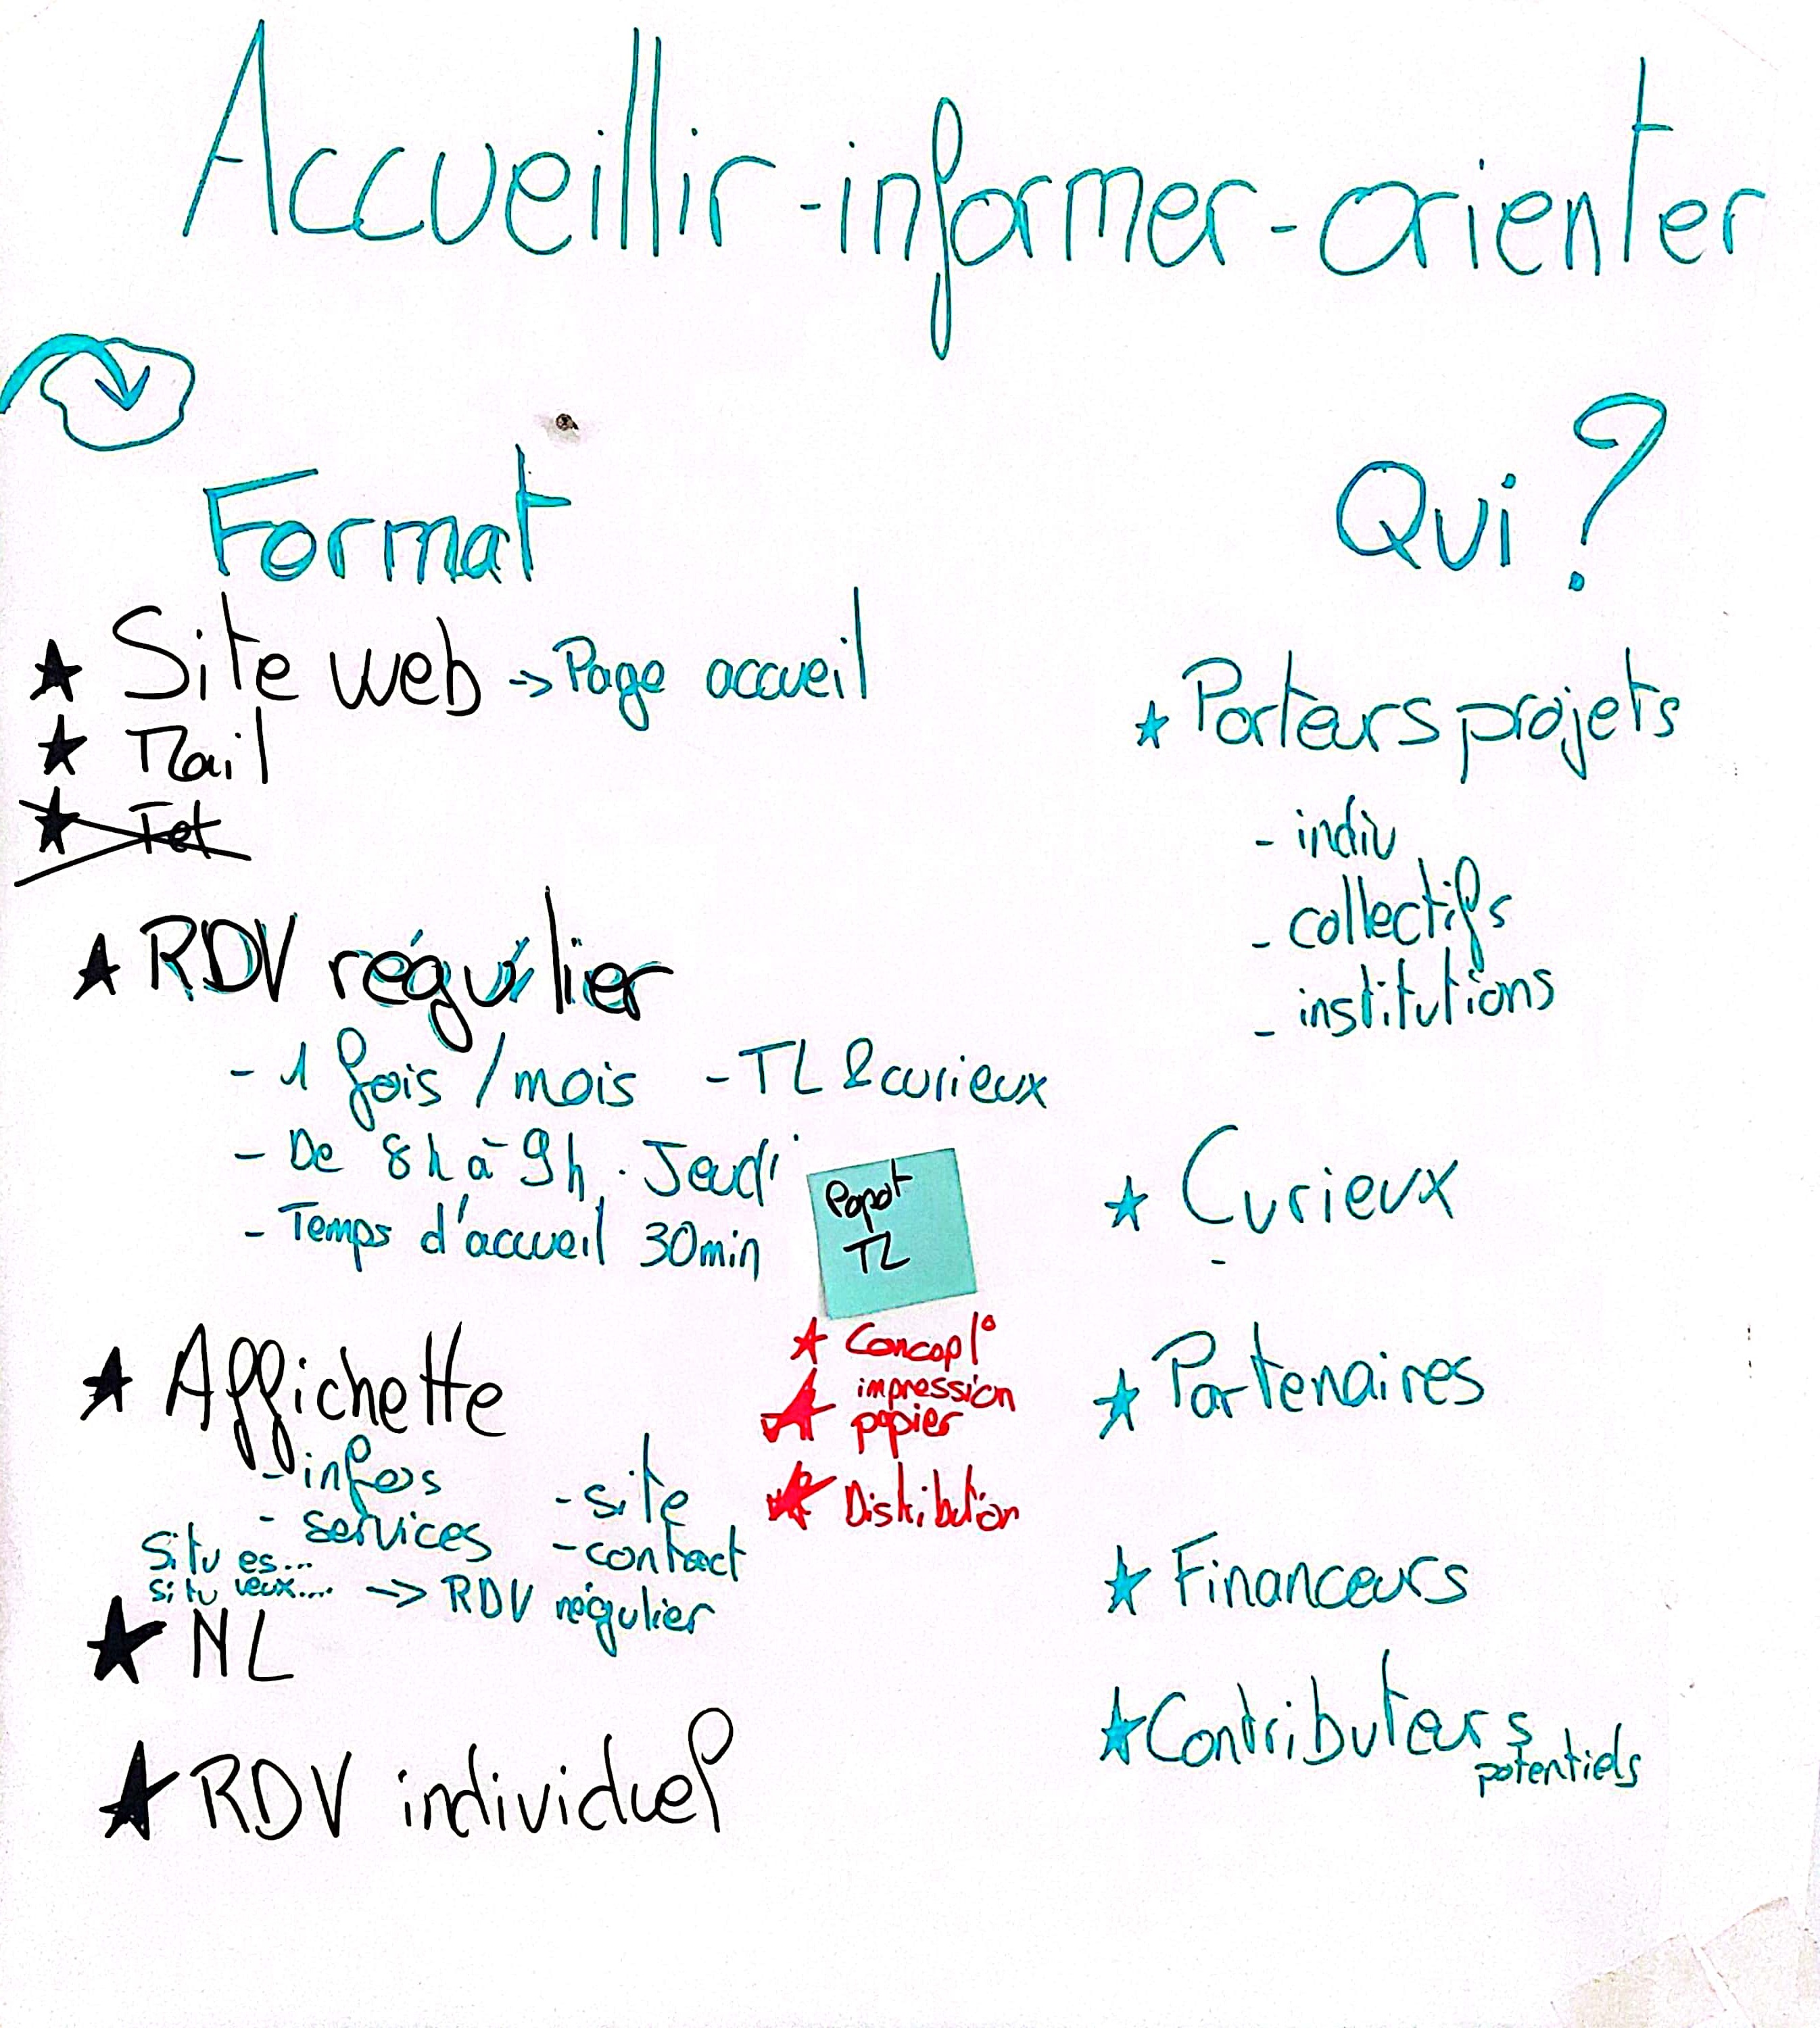 Accueillir - informer - orienter
Format
★ Site web -> Page accueil
★ Mail
★ Tel
★ RDV régulier
- 1 fois / mois - TL & curieux
- De 8h à 9h . Jeudi
- Temps d'accueil 30min
Papot
TL
★ Affichette
- infos
- services
- site
- contact
Si tu es...
si tu veux.... -> RDV régulier
★ Concept°
★ impression
papier
★ Distribution
★ NL
★ RDV individuel
Qui ?
★ Porteurs projets
- indiv
- collectifs
- institutions
★ Curieux
-
★ Partenaires
★ Financeurs
★ Contributeurs
potentiels